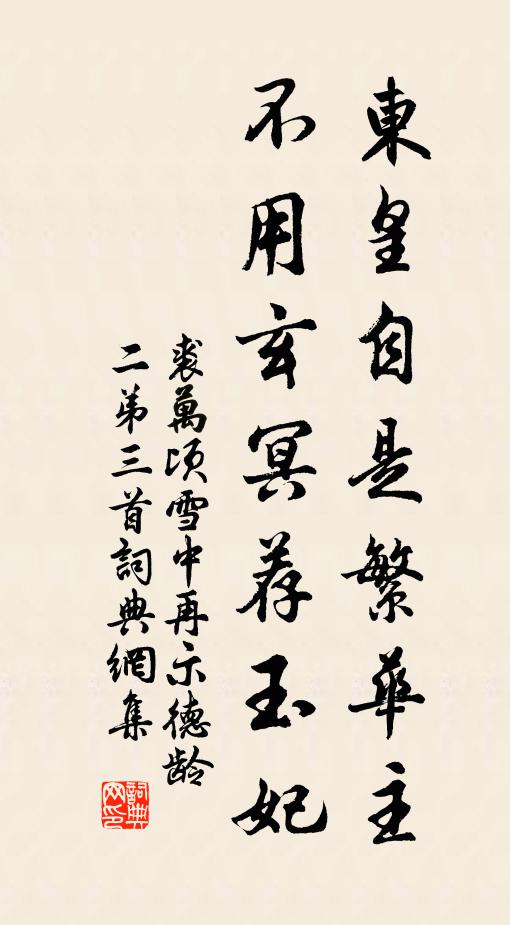 東皇自是繁華主
不用玄冥荐玉妃
裘萬頃雪中再示德龄
二第三首詞典網集
詞典网印